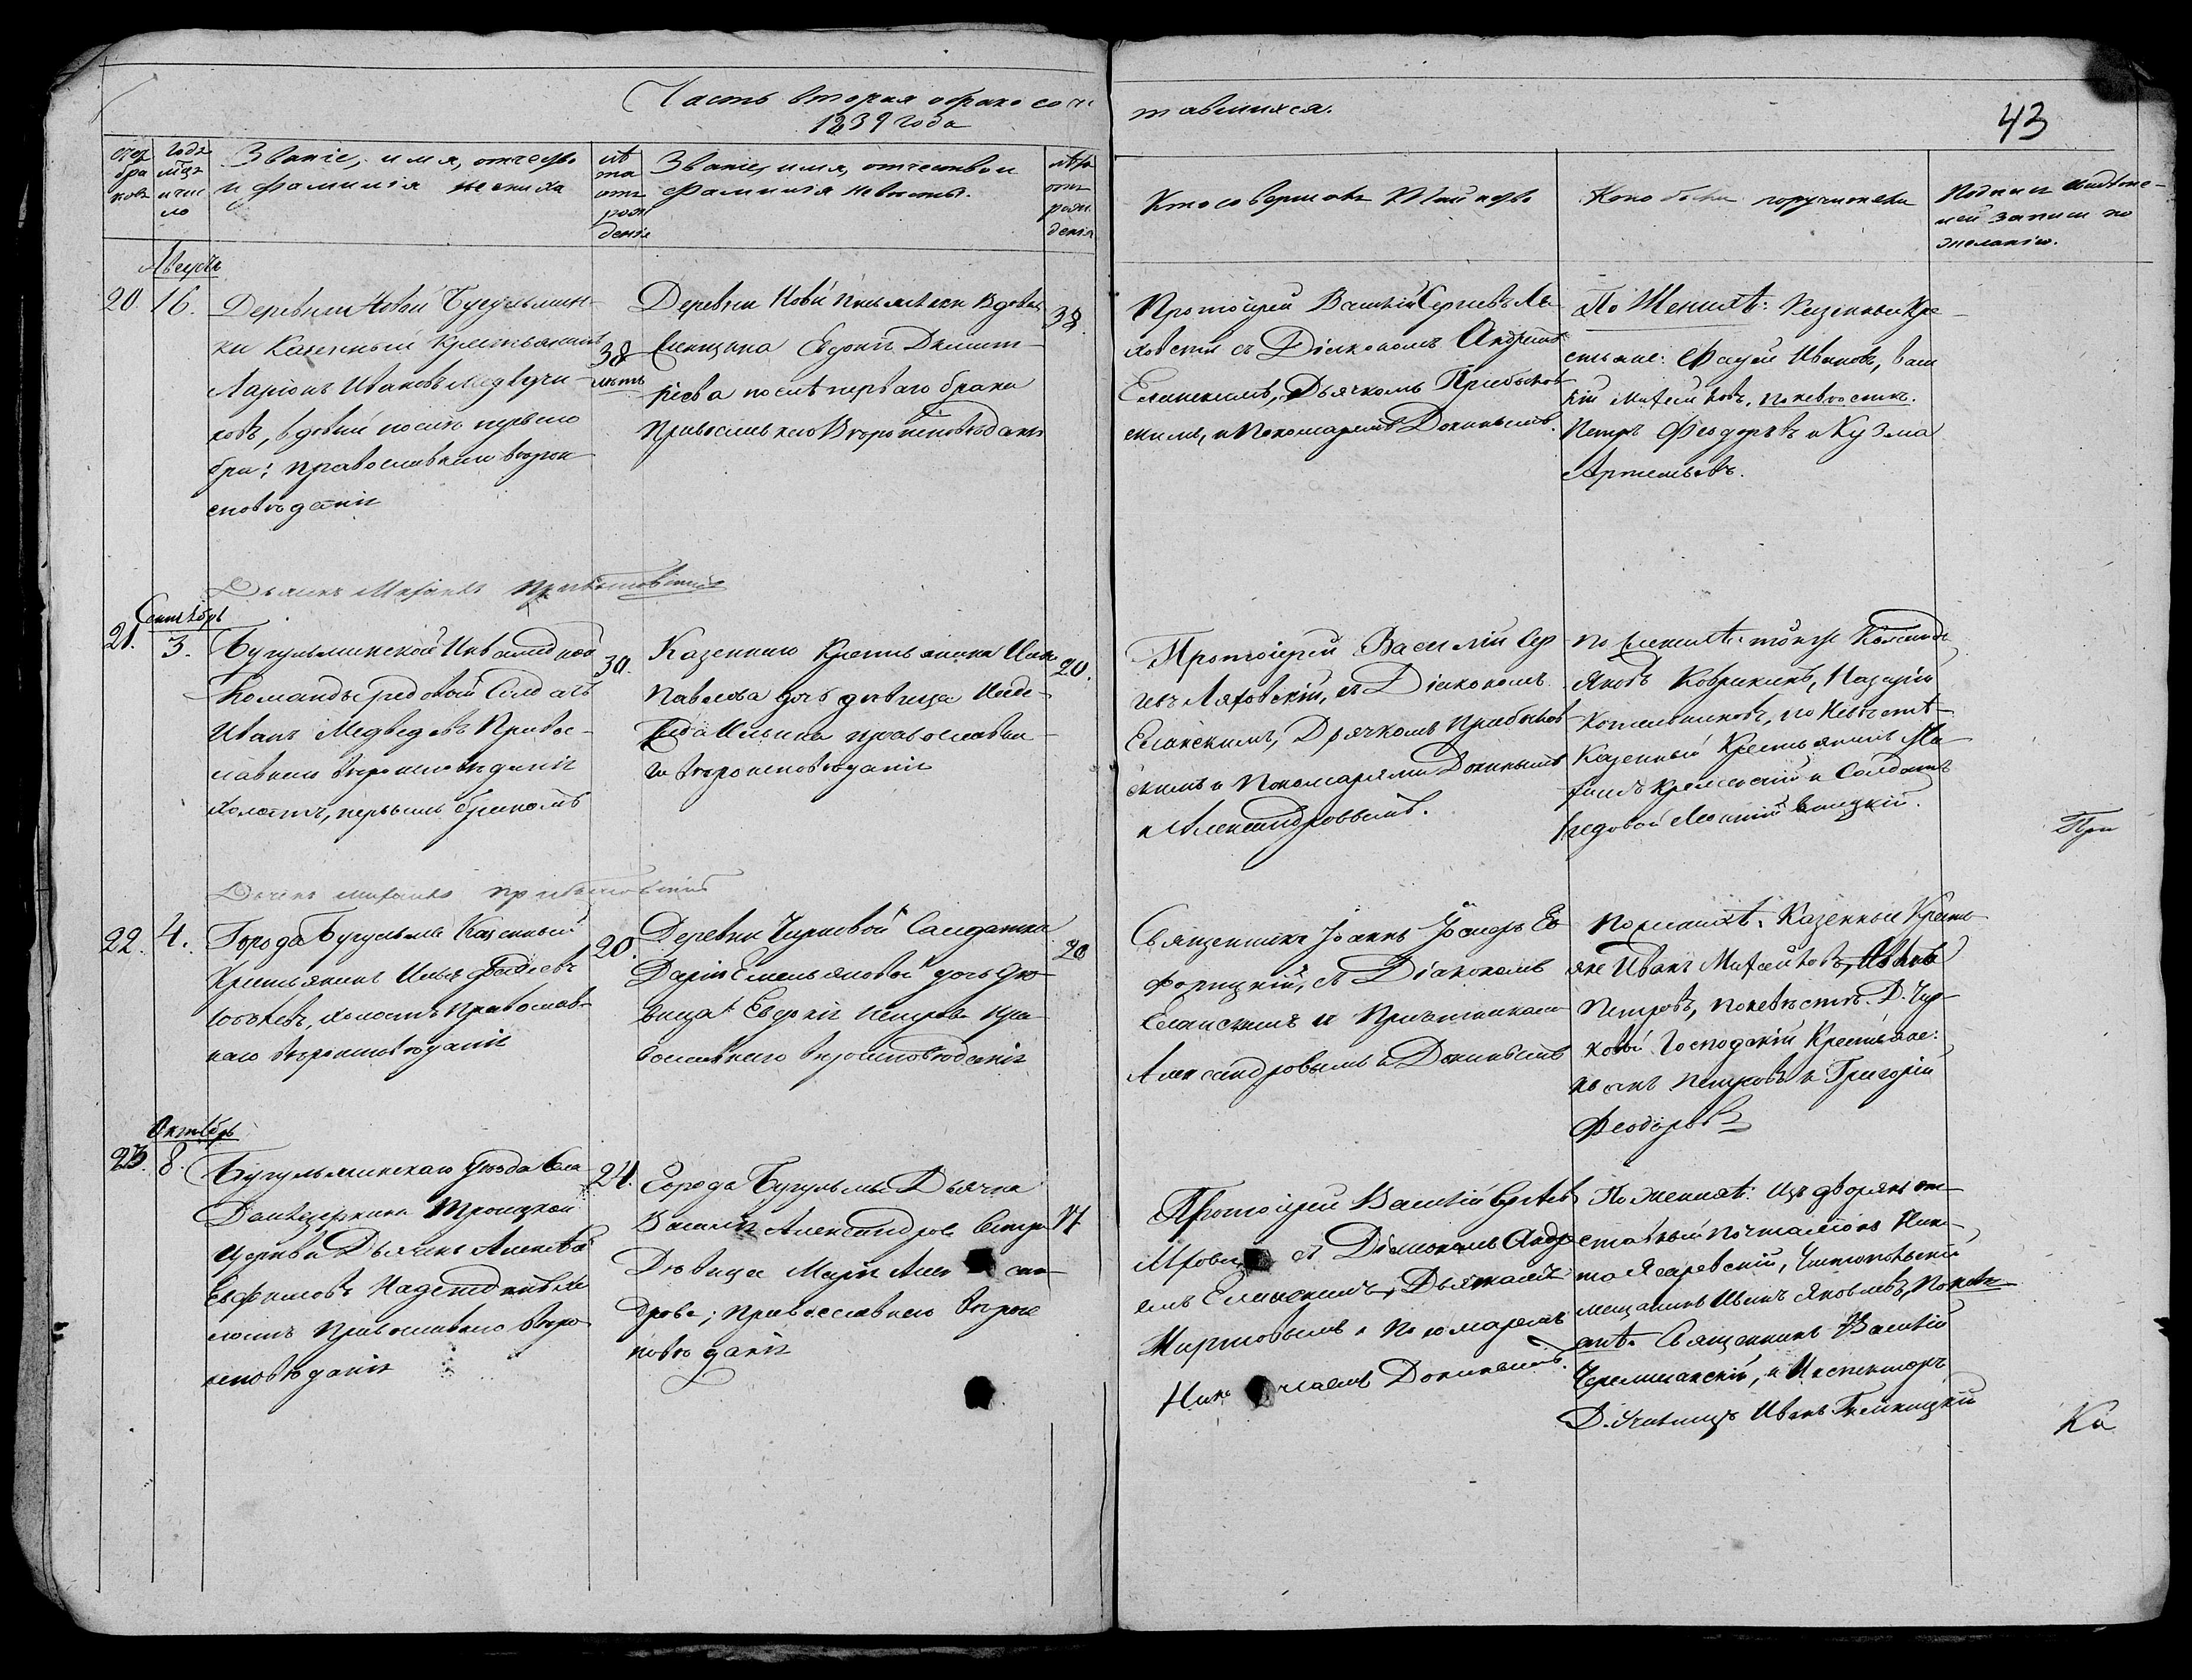 Часть вторая о бракосоче
тавшихся.
1839 года
43
счет браковъ
Годъ мцъ и число
Званіе, имя, отчество
и фамилія жениха
лѣта отъ рожденія
Званіе, имя, отчество и
фамилія невѣсты.
лѣта отъ рожденія
Кто совершалъ Таинство
Кто были поручители
Подпись свидѣте-
лей записи по
желанію.
Августъ
20. 16.
Деревни Новой Бугульмин-
ки Казенный крестьянинъ
Ларіонъ Ивановъ
ковъ, вдовый послѣ перваго
бра: православнаго вѣрои-
сповѣданія
38
лѣтъ
Деревни Новой Письмянки вдова
Евдокія Димит-
ріева послѣ перваго брака
Православнаго Вѣроисповѣданія
38.
Протоіерей Василій Сергіевъ Ля-
ховскій съ Діакономъ Андреемъ
Еланскимъ, Дьячкомъ Прибылов-
скимъ, и Пономаремъ Докинымъ.
По Женихѣ: Казенные Кре-
стьяне: Фадей Ивановъ, Васи
лій Михайловъ, по невѣстѣ.
Петръ Феодоровъ и Кузма
Артемьевъ.
Дьячекъ Михаилъ
Сентябрь
21. 3.
Бугульминской Инвалидной
Команды рядовый Солдатъ
Иванъ Медведевъ Правос-
лавнаго вѣроисповѣданія
холостъ, первымъ бракомъ
30.
Казеннаго Крестьянина Ильи
Павлова дочь дѣвица
Ильина православна-
го вѣроисповѣданія
20.
Протоіерей Василій Сер
гіевъ Ляховскій, съ Діакономъ
Еланскимъ, Дьячкомъ Прибылов
скимъ и Пономарями Докинымъ
и Александровымъ.
По женихѣ: той же Команды
Яковъ Коврикинъ, Назарій
Котельниковъ, по Невѣстѣ-
Казенный Крестьянинъ
и Солдатъ
рядовой
При
Дьячекъ Михаилъ
22. 4.
Города Бугульмы Казенный
Крестьянинъ Илья Фадеевъ
холостъ Православ-
наго вѣроисповѣданія
20.
Деревни Чирковой Солдатки
Даріи Емельяновой дочь дѣ-
вица Евдокія Петрова Пра-
вославнаго вѣроисповѣданія
20
Священникъ Іоаннъ
съ Діакономъ
Еланскимъ и Причетниками
Александровымъ и Докинымъ
По женихѣ: Казенные Кресть-
яне Иванъ Михайловъ,
Петровъ, по невѣстѣ. Д. Чир-
ковой Господскіе Крестьяне:
Петровъ и Григорій
Феодоровъ
Октябрь
23. 8.
Бугульминскаго Уѣзда Села
Троицкой
Церкви Дьячекъ Алексѣй
Ефимовъ Надеждинъ Хо
лостъ Православнаго Вѣро
исповѣданія
24.
Города Бугульмы Дьячка
Василія Александрова Сестра
Дѣвица Марія Алек сан-
дрова; Православнаго вѣроис
повѣданія
17
Протоіерей Василій Сергѣевъ
Ляховс съ Діакономъ Андре
емъ Еланскимъ, Дьячкомъ
и Пономаремъ
Нико лаемъ Докинымъ.
По женихѣ: Изъ дворянъ от-
ставный Почталіонъ Ники-
та Чистопольскій
мещанинъ Иванъ Яковлевъ, По невѣ
стѣ. Священникъ Василій
Черемшанскій, и Инспекторъ
Д. Училищъ Иванъ
Ка